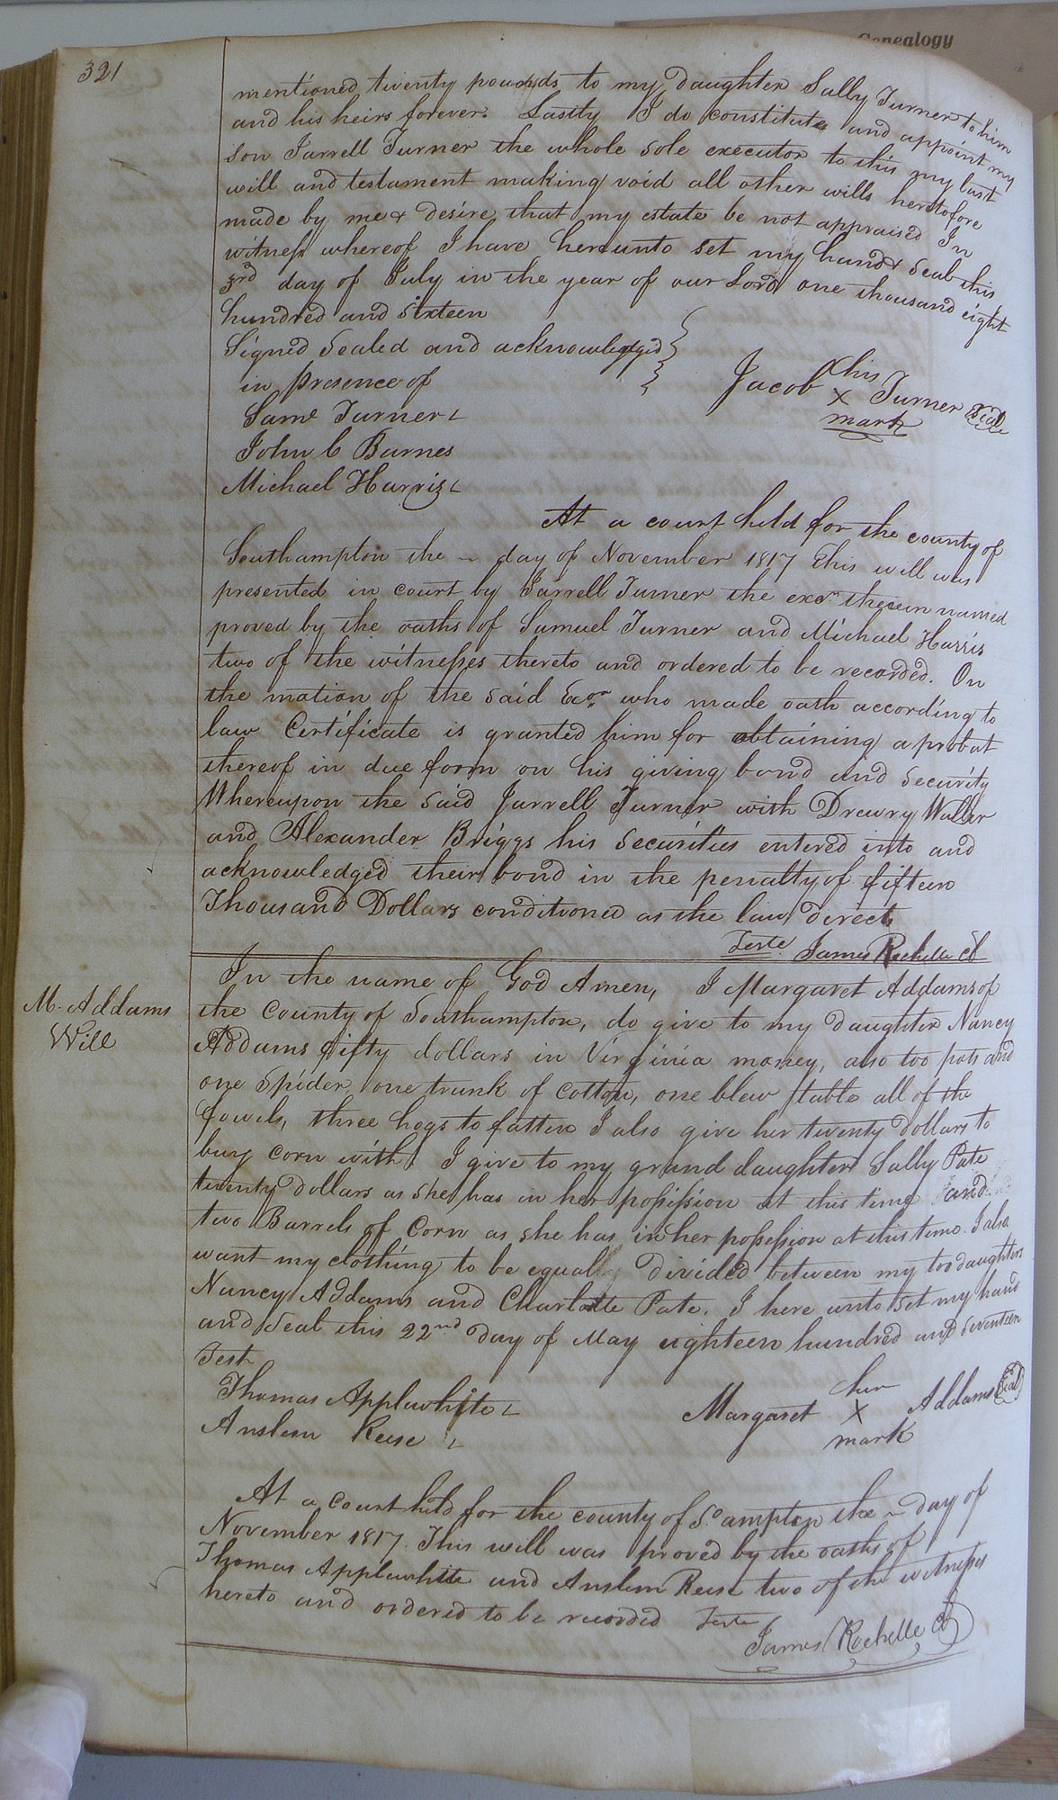 Genealogy
321
mentioned twenty pounds to my daughter Sally Turner to him
and his heirs forever. Lastly I do constitute and appoint my
son Jarrell Turner the whole sole executor to this my last
will and testament making void all other wills heretofore
made by me & desire that my estate be not appraised In
witness whereof I have hereunto set my hand & seal this
3rd day of July in the year of our Lord one thousand eight
hundred and sixteen
Signed Sealed and acknowledged
in presence of
Saml Turner
John C Barnes
Michael Harris
his
Jacob X Turner Seal
mark
At a court held for the county of
Southampton the ~ day of November 1817 This will was
presented in court by Jarrell Turner the exor therein named
proved by the oaths of Samuel Turner and Michael Harris
two of the witnesses thereto and ordered to be recorded. On
the motion of the said Exor who made oath according to
law Certificate is granted him for obtaining a probat
thereof in due form on his giving bond and security
Whereupon the said Jarrell Turner with Drewry Waller
and Alexander Briggs his Securities entered into and
acknowledged their bond in the penalty of fifteen
Thousand Dollars conditioned as the law directs
Teste James Rochelle Cl
M. Addams
Will
In the name of God Amen, I Margaret Addams of
the County of Southampton, do give to my daughter Nancy
Addams fifty dollars in Virginia money, also too pots and
one Spider, one trunk of cotton, one blew table all of the
fowels, three hogs to fatten I also give her twenty Dollars to
buy corn with. I give to my grand daughter Sally Pate
twenty Dollars as she has in her possission at this time and
two Barrels of Corn as she has in her possession at this time. I also
want my clothing to be equal divided between my too daughters
Nancy Addams and Charlotte Pate. I here unto set my hand
and seal this 22nd day of May eighteen hundred and seventeen
Test
Thomas Applewhite
Anslem Reese
her
Margaret X Addams Seal
mark
At a court held for the county of So ampton the ~ day of
November 1817. This will was proved by the oaths of
Thomas Applewhite and Anslem Reese two of the witnesses
hereto and ordered to be recorded Teste
James Rochelle Cl